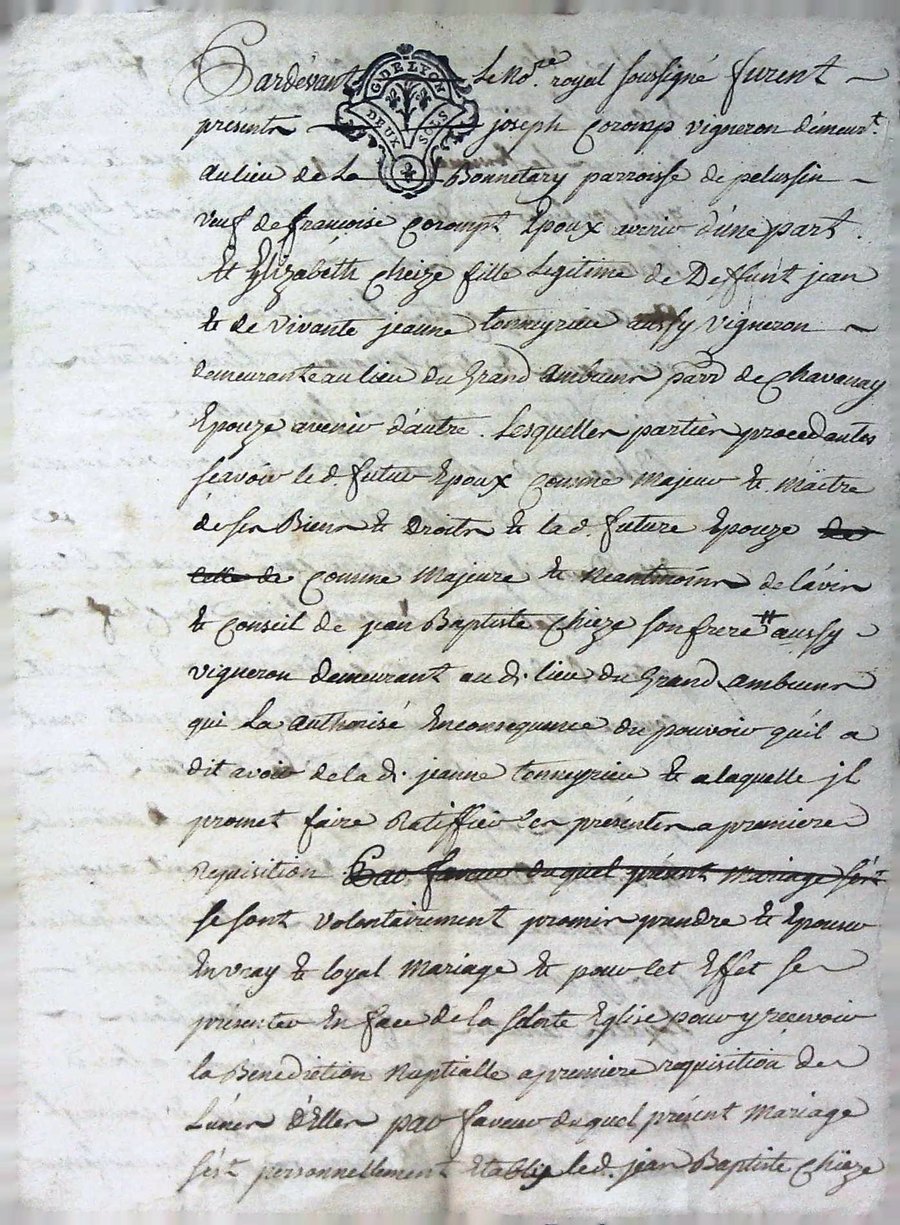 Pardevant Le No.re royal soussigné furent
G. DE LYON
DEUX SOLS
présents joseph Coromp vigneron démeur.t
au lieu de La Bonnetary parroisse de pelussin
veuf de françoise Corompt Epoux avenir d'une part.
Et Elizabéth Cheize fille Legitime de Deffunt jean
& de vivante jeanne tonneyrieu aussy vigneron
demeurante au lieu du Grand Ambuens parr.d de Chavanay
Epouze avenir d'autre. Lesquelles parties procedantes
scavoir le d. futur Epoux comme Majeur & Maitre
de ses Biens & Droits & la d. future Epouze de
celle de comme Majeure & Neantmoins de l'avis
& Conseil de jean Baptiste Chieze son frere aussy
vigneron demeurant au d. lieu du Grand ambuens
qui La authorisé En consequence du pouvoir qu'il a
dit avoir de la d. jeanne tonneyrieu & a laquelle jl
promet faire Ratiffier ces présentes a premiere
Requisition Par faveur duquel présent Mariage s'ést
se sont volontairement promis prandre & Epouser
En vray & loyal Mariage & pour cet Effet se
présenter En face de la S.te Eglise pour y recevoir
la Benediction Nuptialle a premiere requisition de
L'une d'Elles par faveur duquel présent Mariage
s'ést personnellement Etablÿ le d. jean Baptiste Chieze